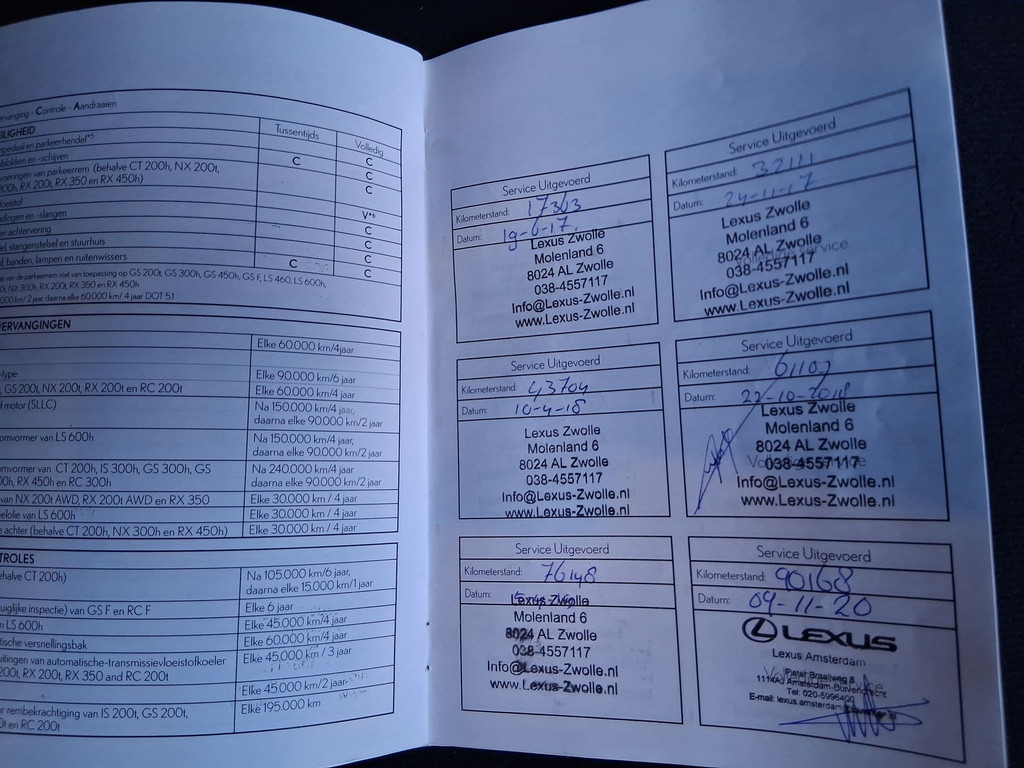 ervanging - Controle - Aandraaien
EILIGHEID
Tussentijds
Volledig
mpedaal en parkeerhendel*5
C
mblokken en -schijven
C
C
voeringen van parkeerrem (behalve CT 200h, NX 200t,
00h, RX 200t, RX 350 en RX 450h)
C
loeistof
V*6
dingen en -slangen
C
en achtervering
C
el, stangenstelsel en stuurhuis
C
d, banden, lampen en ruitenwissers
C
C
e van de parkeerrem niet van toepassing op GS 200t, GS 300h, GS 450h, GS F, LS 460, LS 600h,
t, NX 300h, RX 200t, RX 350 en RX 450h
000 km/ 2 jaar, daarna elke 60.000 km/ 4 jaar DOT 5.1
ERVANGINGEN
Elke 60.000 km/4jaar
-type
Elke 90.000 km/6 jaar
, GS 200t, NX 200t, RX 200t en RC 200t
Elke 60.000 km/4 jaar
l motor (SLLC)
Na 150.000 km/4 jaar,
daarna elke 90.000 km/2 jaar
omvormer van LS 600h
Na 150.000 km/4 jaar,
daarna elke 90.000 km/2 jaar
omvormer van CT 200h, IS 300h, GS 300h, GS
0h, RX 450h en RC 300h
Na 240.000 km/4 jaar
daarna elke 90.000 km/2 jaar
van NX 200t AWD, RX 200t AWD en RX 350
Elke 30.000 km / 4 jaar
elolie van LS 600h
Elke 30.000 km / 4 jaar
e achter (behalve CT 200h, NX 300h en RX 450h)
Elke 30.000 km / 4 jaar
TROLES
ehalve CT 200h)
Na 105.000 km/6 jaar,
daarna elke 15.000 km/1 jaar
uiglijke inspectie) van GS F en RC F
Elke 6 jaar
n LS 600h
Elke 45.000 km/4 jaar
tische versnellingsbak
Elke 60.000 km/4 jaar
uilingen van automatische-transmissievloeistofkoeler
200t, RX 200t, RX 350 and RC 200t
Elke 45,000 km / 3 jaar
Elke 45.000 km/2 jaar
r rembekrachtiging van IS 200t, GS 200t,
0t en RC 200t
Elke 195.000 km
Service Uitgevoerd
Kilometerstand: 17363
Datum: 19-6-17
Lexus Zwolle
Molenland 6
8024 AL Zwolle
038-4557117
Info@Lexus-Zwolle.nl
www.Lexus-Zwolle.nl
Service Uitgevoerd
Kilometerstand: 32111
Datum: 24-11-17
Lexus Zwolle
Molenland 6
8024 AL Zwolle
038-4557117
Info@Lexus-Zwolle.nl
www.Lexus-Zwolle.nl
Service Uitgevoerd
Kilometerstand: 43704
Datum: 10-4-18
Lexus Zwolle
Molenland 6
8024 AL Zwolle
038-4557117
Info@Lexus-Zwolle.nl
www.Lexus-Zwolle.nl
Service Uitgevoerd
Kilometerstand: 61107
Datum: 22-10-2018
Lexus Zwolle
Molenland 6
8024 AL Zwolle
038-4557117
Info@Lexus-Zwolle.nl
www.Lexus-Zwolle.nl
Service Uitgevoerd
Kilometerstand: 76148
Datum:
Lexus Zwolle
Molenland 6
8024 AL Zwolle
038-4557117
Info@Lexus-Zwolle.nl
www.Lexus-Zwolle.nl
Service Uitgevoerd
Kilometerstand: 90168
Datum: 09-11-20
LEXUS
Lexus Amsterdam
Pieter Braaijweg 8
1114AJ Amsterdam-Duivendrecht
Tel: 020-5996400
E-mail: lexus.amsterdam